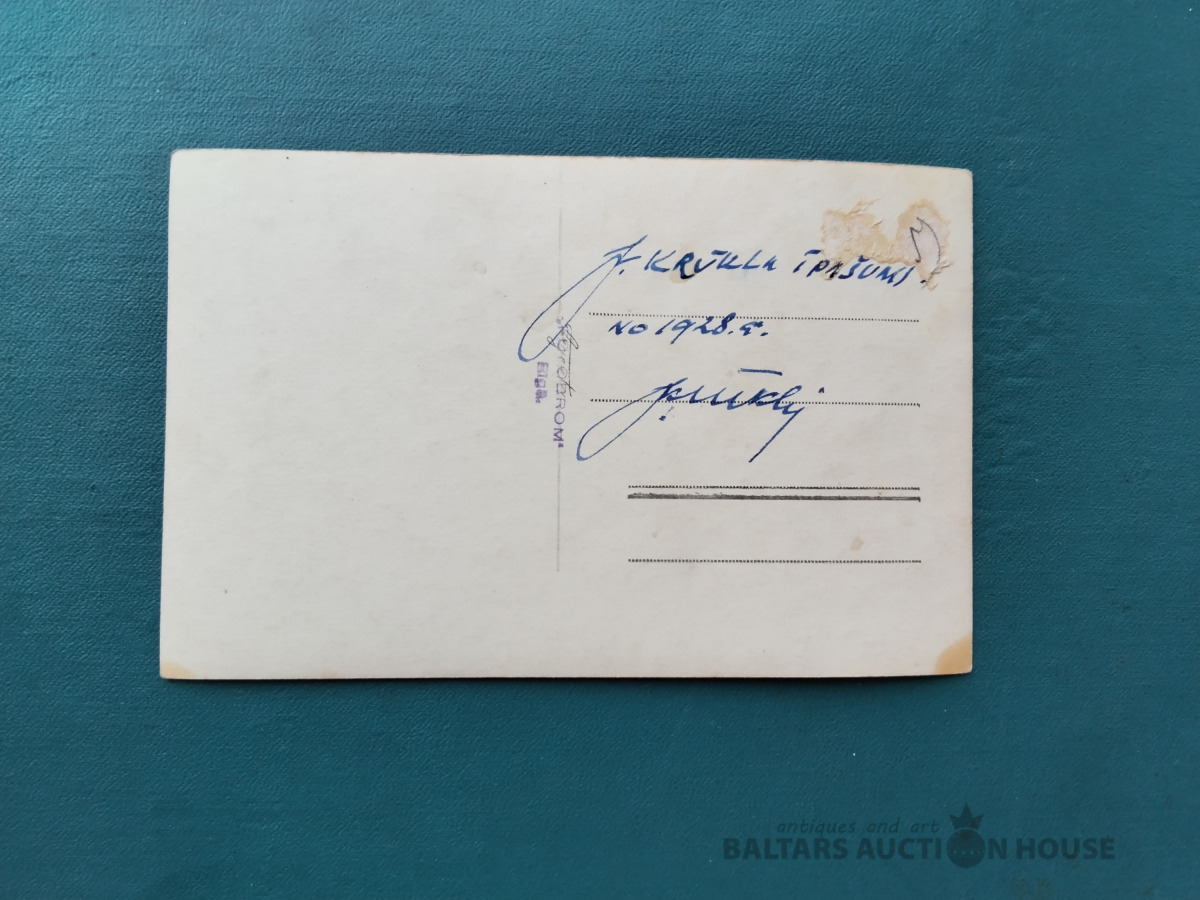 J. KRŪKLA ĪPAŠUMS.
NO 1928.g.
JKrūkliņ
Rīgā.
antiques and art
BALTARS AUCTION HOUSE